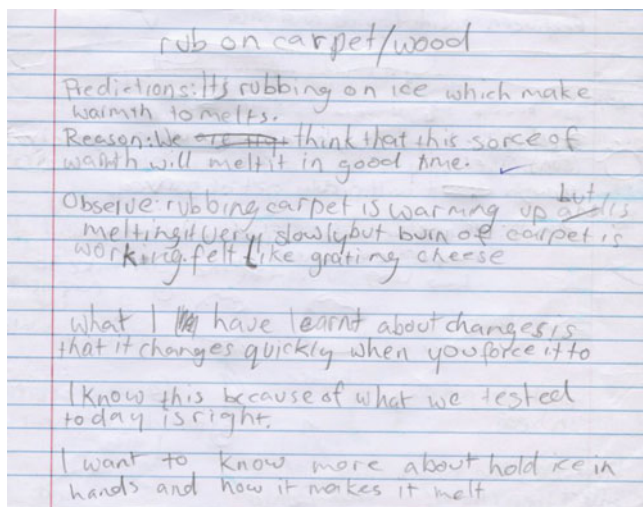 rub on carpet/wood
Predictions: Its rubbing on ice which make
warmth to melts.
Reason: We think that this sorce of
warmth will melt it in good time.
but
Observe: rubbing carpet is warming up is
melting it very slowly but burn of carpet is
working. felt like grating cheese
what I have learnt about changes is
that it changes quickly when you force it to
I know this because of what we tested
today is right.
I want to know more about hold ice in
hands and how it makes it melt